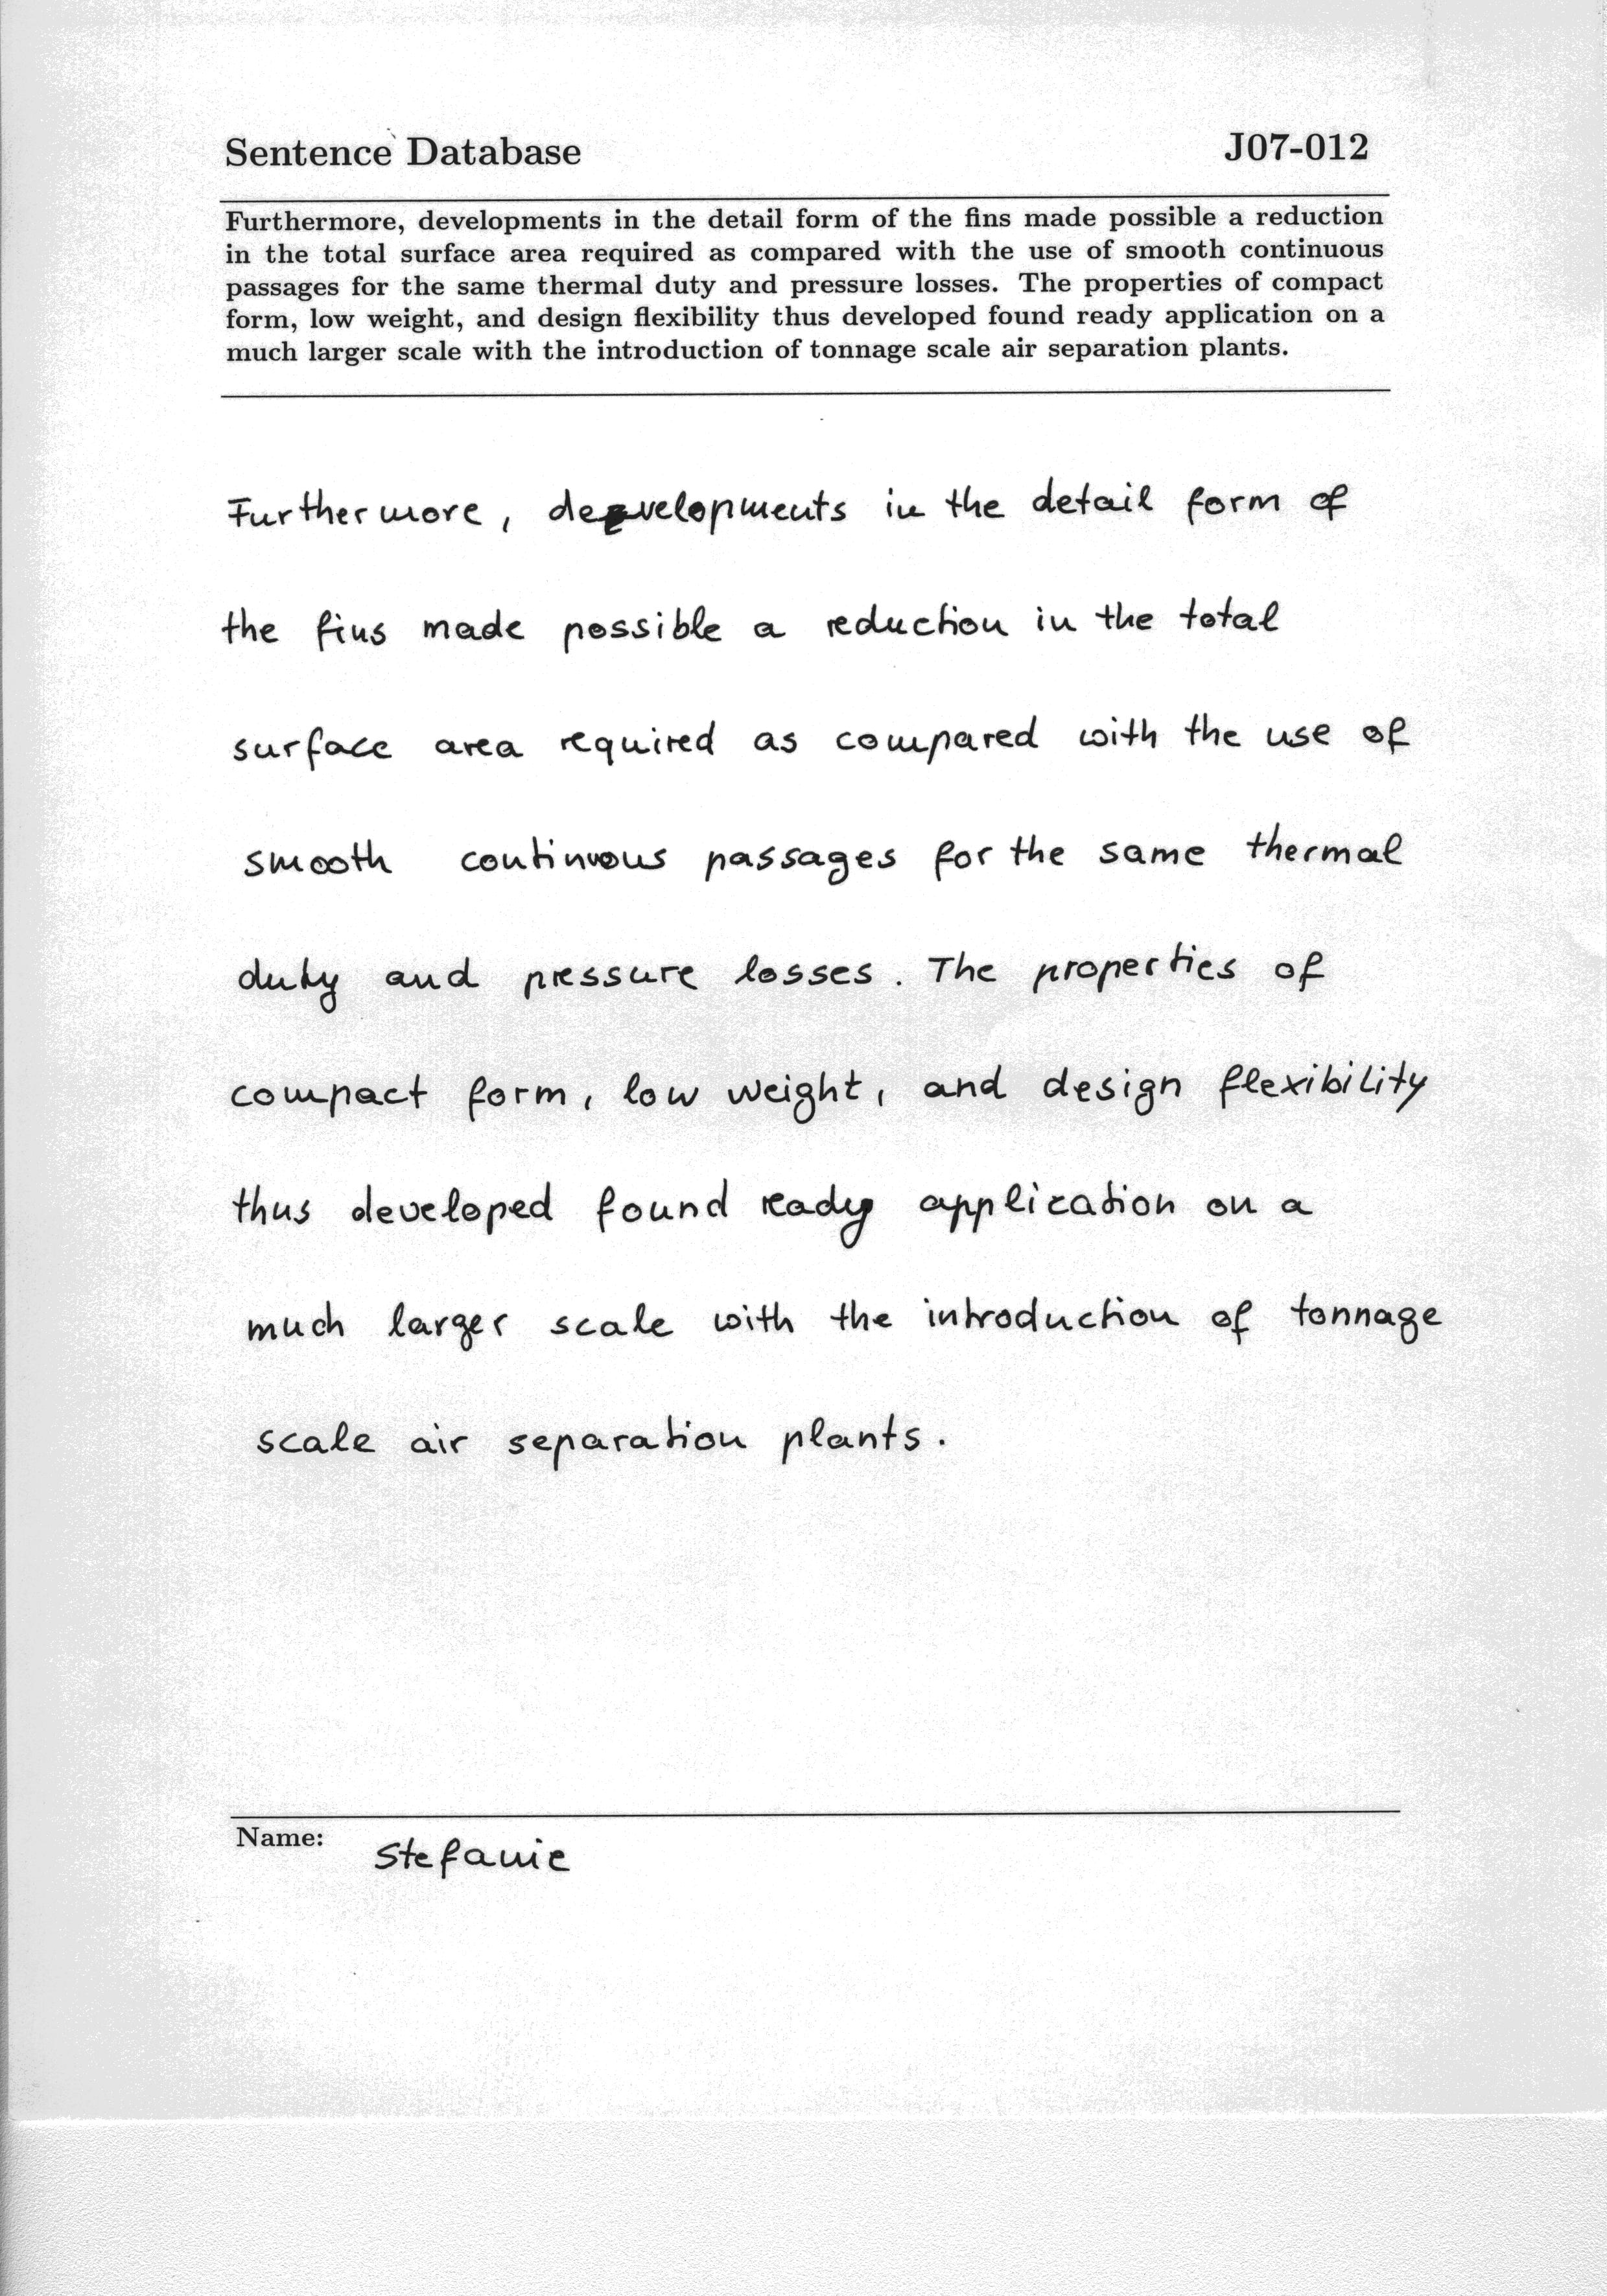 Sentence Database
J07-012
Furthermore, developments in the detail form of the fins made possible a reduction
in the total surface area required as compared with the use of smooth continuous
passages for the same thermal duty and pressure losses. The properties of compact
form, low weight, and design flexibility thus developed found ready application on a
much larger scale with the introduction of tonnage scale air separation plants.
Furthermore, developments in the detail form of
the fins made possible a reduction in the total
surface area required as compared with the use of
smooth continuous passages for the same thermal
duty and pressure losses. The properties of
compact form, low weight, and design flexibility
thus developed found ready application on a
much larger scale with the introduction of tonnage
scale air separation plants.
Name:
Stefanie